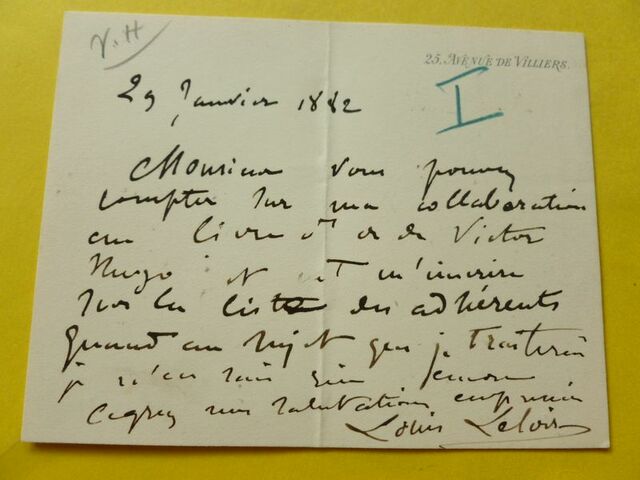 V.H
25, AVENUE DE VILLIERS.
I
29 Janvier 1882
Monsieur vous pouvez
compter sur ma collaboration
au livre d'or de Victor
Hugo et m'inscrire
sur la liste des adhérents
Quand au sujet que je traiterai
je n'en sais rien encore
Agréez mes salutations empressées
Louis Leloir